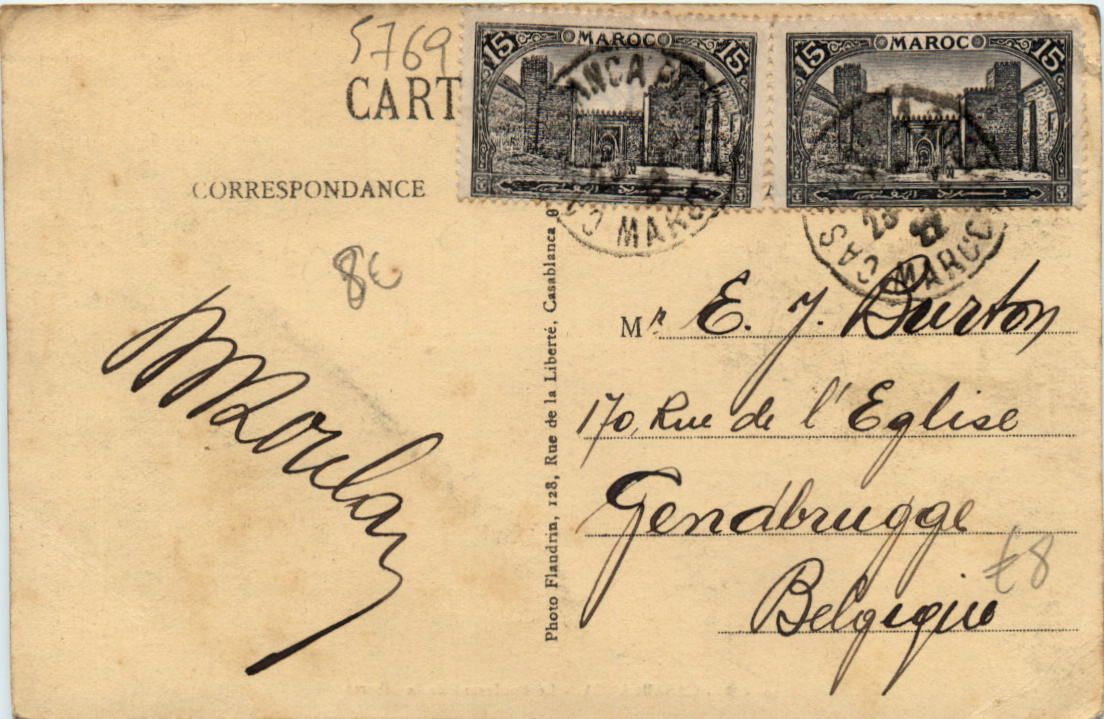 5769
CART
15 MAROC 15
15 MAROC 15
ANCA P
MAROC
CAS
23
22
MAROC
CORRESPONDANCE
8€
Photo Flandrin, 128, Rue de la Liberté, Casablanca
Mr E. J. Burton
170, Rue de l'Eglise
Gendbrugge
£8
Belgique